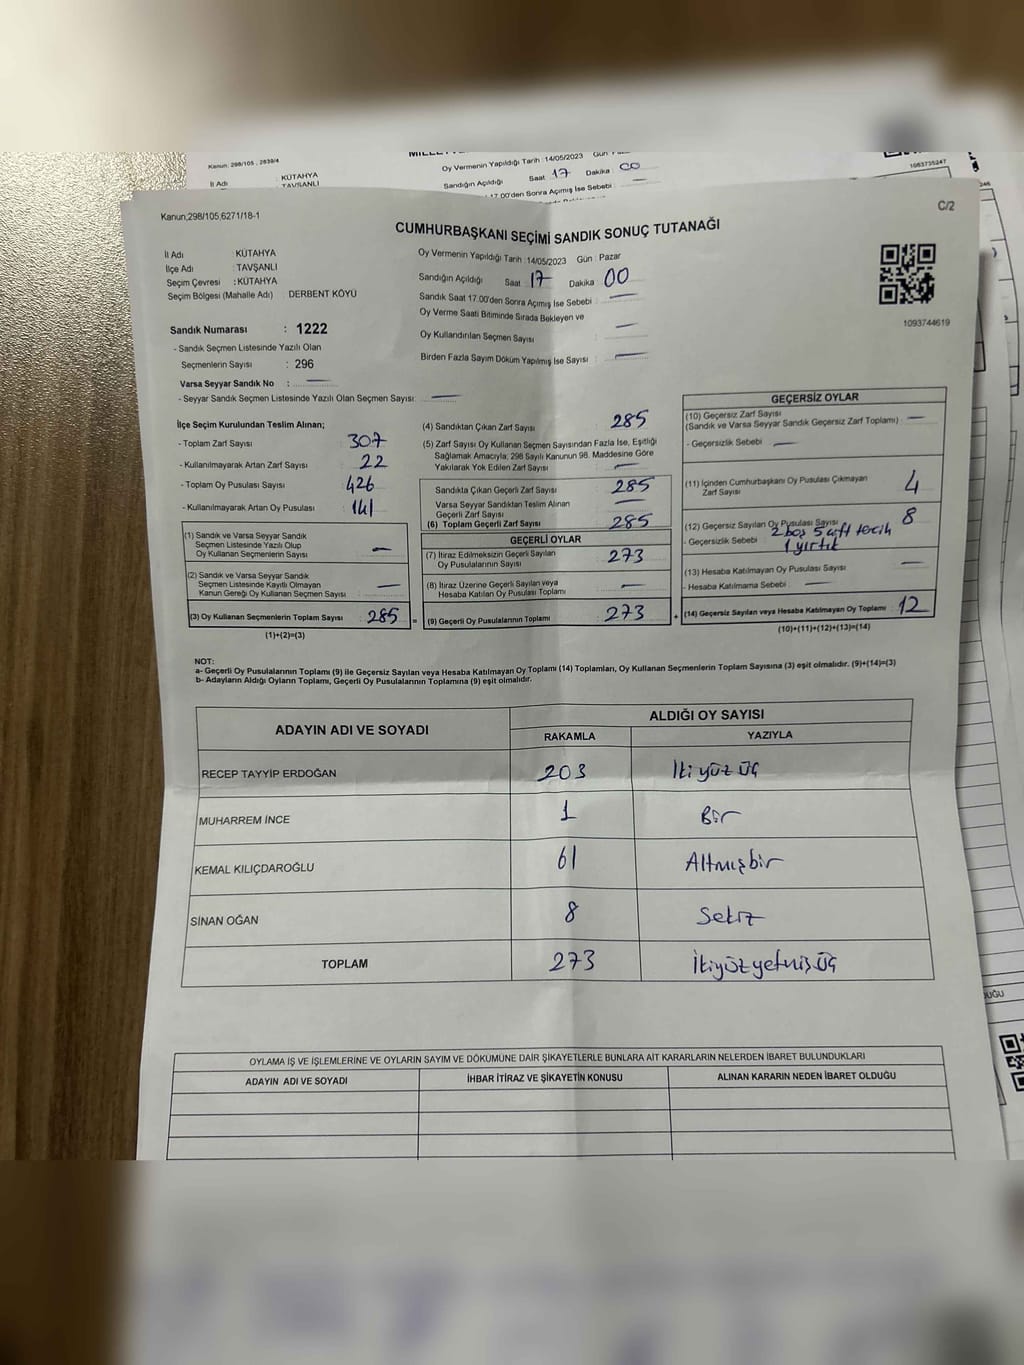 Kanun: 298/105 , 2839/4
İl Adı KÜTAHYA
TAVŞANLI
Oy Vermenin Yapıldığı Tarih : 14/05/2023 Gün :
Sandığın Açıldığı Saat 17 Dakika : 00
17.00'den Sonra Açımış İse Sebebi :
1083735247
Kanun,298/105,6271/18-1
C/2
CUMHURBAŞKANI SEÇİMİ SANDIK SONUÇ TUTANAĞI
İl Adı : KÜTAHYA
İlçe Adı : TAVŞANLI
Seçim Çevresi : KÜTAHYA
Seçim Bölgesi (Mahalle Adı) DERBENT KÖYÜ
Sandık Numarası : 1222
- Sandık Seçmen Listesinde Yazılı Olan
Seçmenlerin Sayısı : 296
Varsa Seyyar Sandık No : —
- Seyyar Sandık Seçmen Listesinde Yazılı Olan Seçmen Sayısı: —
Oy Vermenin Yapıldığı Tarih :14/05/2023 Gün : Pazar
Sandığın Açıldığı Saat 17 Dakika 00
Sandık Saat 17.00'den Sonra Açımış İse Sebebi : —
Oy Verme Saati Bitiminde Sırada Bekleyen ve
Oy Kullandırılan Seçmen Sayısı : —
Birden Fazla Sayım Döküm Yapılmış İse Sayısı : —
1093744619
İlçe Seçim Kurulundan Teslim Alınan;
- Toplam Zarf Sayısı : 307
- Kullanılmayarak Artan Zarf Sayısı : 22
- Toplam Oy Pusulası Sayısı : 426
- Kullanılmayarak Artan Oy Pusulası : 141
(1) Sandık ve Varsa Seyyar Sandık
Seçmen Listesinde Yazılı Olup
Oy Kullanan Seçmenlerin Sayısı : —
(2) Sandık ve Varsa Seyyar Sandık
Seçmen Listesinde Kayıtlı Olmayan
Kanun Gereği Oy Kullanan Seçmen Sayısı : —
(3) Oy Kullanan Seçmenlerin Toplam Sayısı : 285 =
(1)+(2)=(3)
(4) Sandıktan Çıkan Zarf Sayısı : 285
(5) Zarf Sayısı Oy Kullanan Seçmen Sayısından Fazla İse, Eşitliği
Sağlamak Amacıyla, 298 Sayılı Kanunun 98. Maddesine Göre
Yakılarak Yok Edilen Zarf Sayısı : —
Sandıkta Çıkan Geçerli Zarf Sayısı : 285
Varsa Seyyar Sandıktan Teslim Alınan
Geçerli Zarf Sayısı : —
(6) Toplam Geçerli Zarf Sayısı : 285
GEÇERLİ OYLAR
(7) İtiraz Edilmeksizin Geçerli Sayılan
Oy Pusulalarının Sayısı : 273
(8) İtiraz Üzerine Geçerli Sayılan veya
Hesaba Katılan Oy Pusulası Toplamı : —
(9) Geçerli Oy Pusulalarının Toplamı : 273 +
GEÇERSİZ OYLAR
(10) Geçersiz Zarf Sayısı
(Sandık ve Varsa Seyyar Sandık Geçersiz Zarf Toplamı) : —
- Geçersizlik Sebebi : —
(11) İçinden Cumhurbaşkanı Oy Pusulası Çıkmayan
Zarf Sayısı : 4
(12) Geçersiz Sayılan Oy Pusulası Sayısı : 8
- Geçersizlik Sebebi : 2 boş 5 çift tercih
1 yırtık
(13) Hesaba Katılmayan Oy Pusulası Sayısı : —
- Hesaba Katılmama Sebebi : —
(14) Geçersiz Sayılan veya Hesaba Katılmayan Oy Toplamı : 12
(10)+(11)+(12)+(13)=(14)
NOT:
a- Geçerli Oy Pusulalarının Toplamı (9) ile Geçersiz Sayılan veya Hesaba Katılmayan Oy Toplamı (14) Toplamları, Oy Kullanan Seçmenlerin Toplam Sayısına (3) eşit olmalıdır. (9)+(14)=(3)
b- Adayların Aldığı Oyların Toplamı, Geçerli Oy Pusulalarının Toplamına (9) eşit olmalıdır.
ADAYIN ADI VE SOYADI
ALDIĞI OY SAYISI
RAKAMLA YAZIYLA
RECEP TAYYİP ERDOĞAN 203 İkiyüz üç
MUHARREM İNCE 1 Bir
KEMAL KILIÇDAROĞLU 61 Altmışbir
SİNAN OĞAN 8 Sekiz
TOPLAM 273 İkiyüzyetmişüç
OYLAMA İŞ VE İŞLEMLERİNE VE OYLARIN SAYIM VE DÖKÜMÜNE DAİR ŞİKAYETLERLE BUNLARA AİT KARARLARIN NELERDEN İBARET BULUNDUKLARI
ADAYIN ADI VE SOYADI İHBAR İTİRAZ VE ŞİKAYETİN KONUSU ALINAN KARARIN NEDEN İBARET OLDUĞU